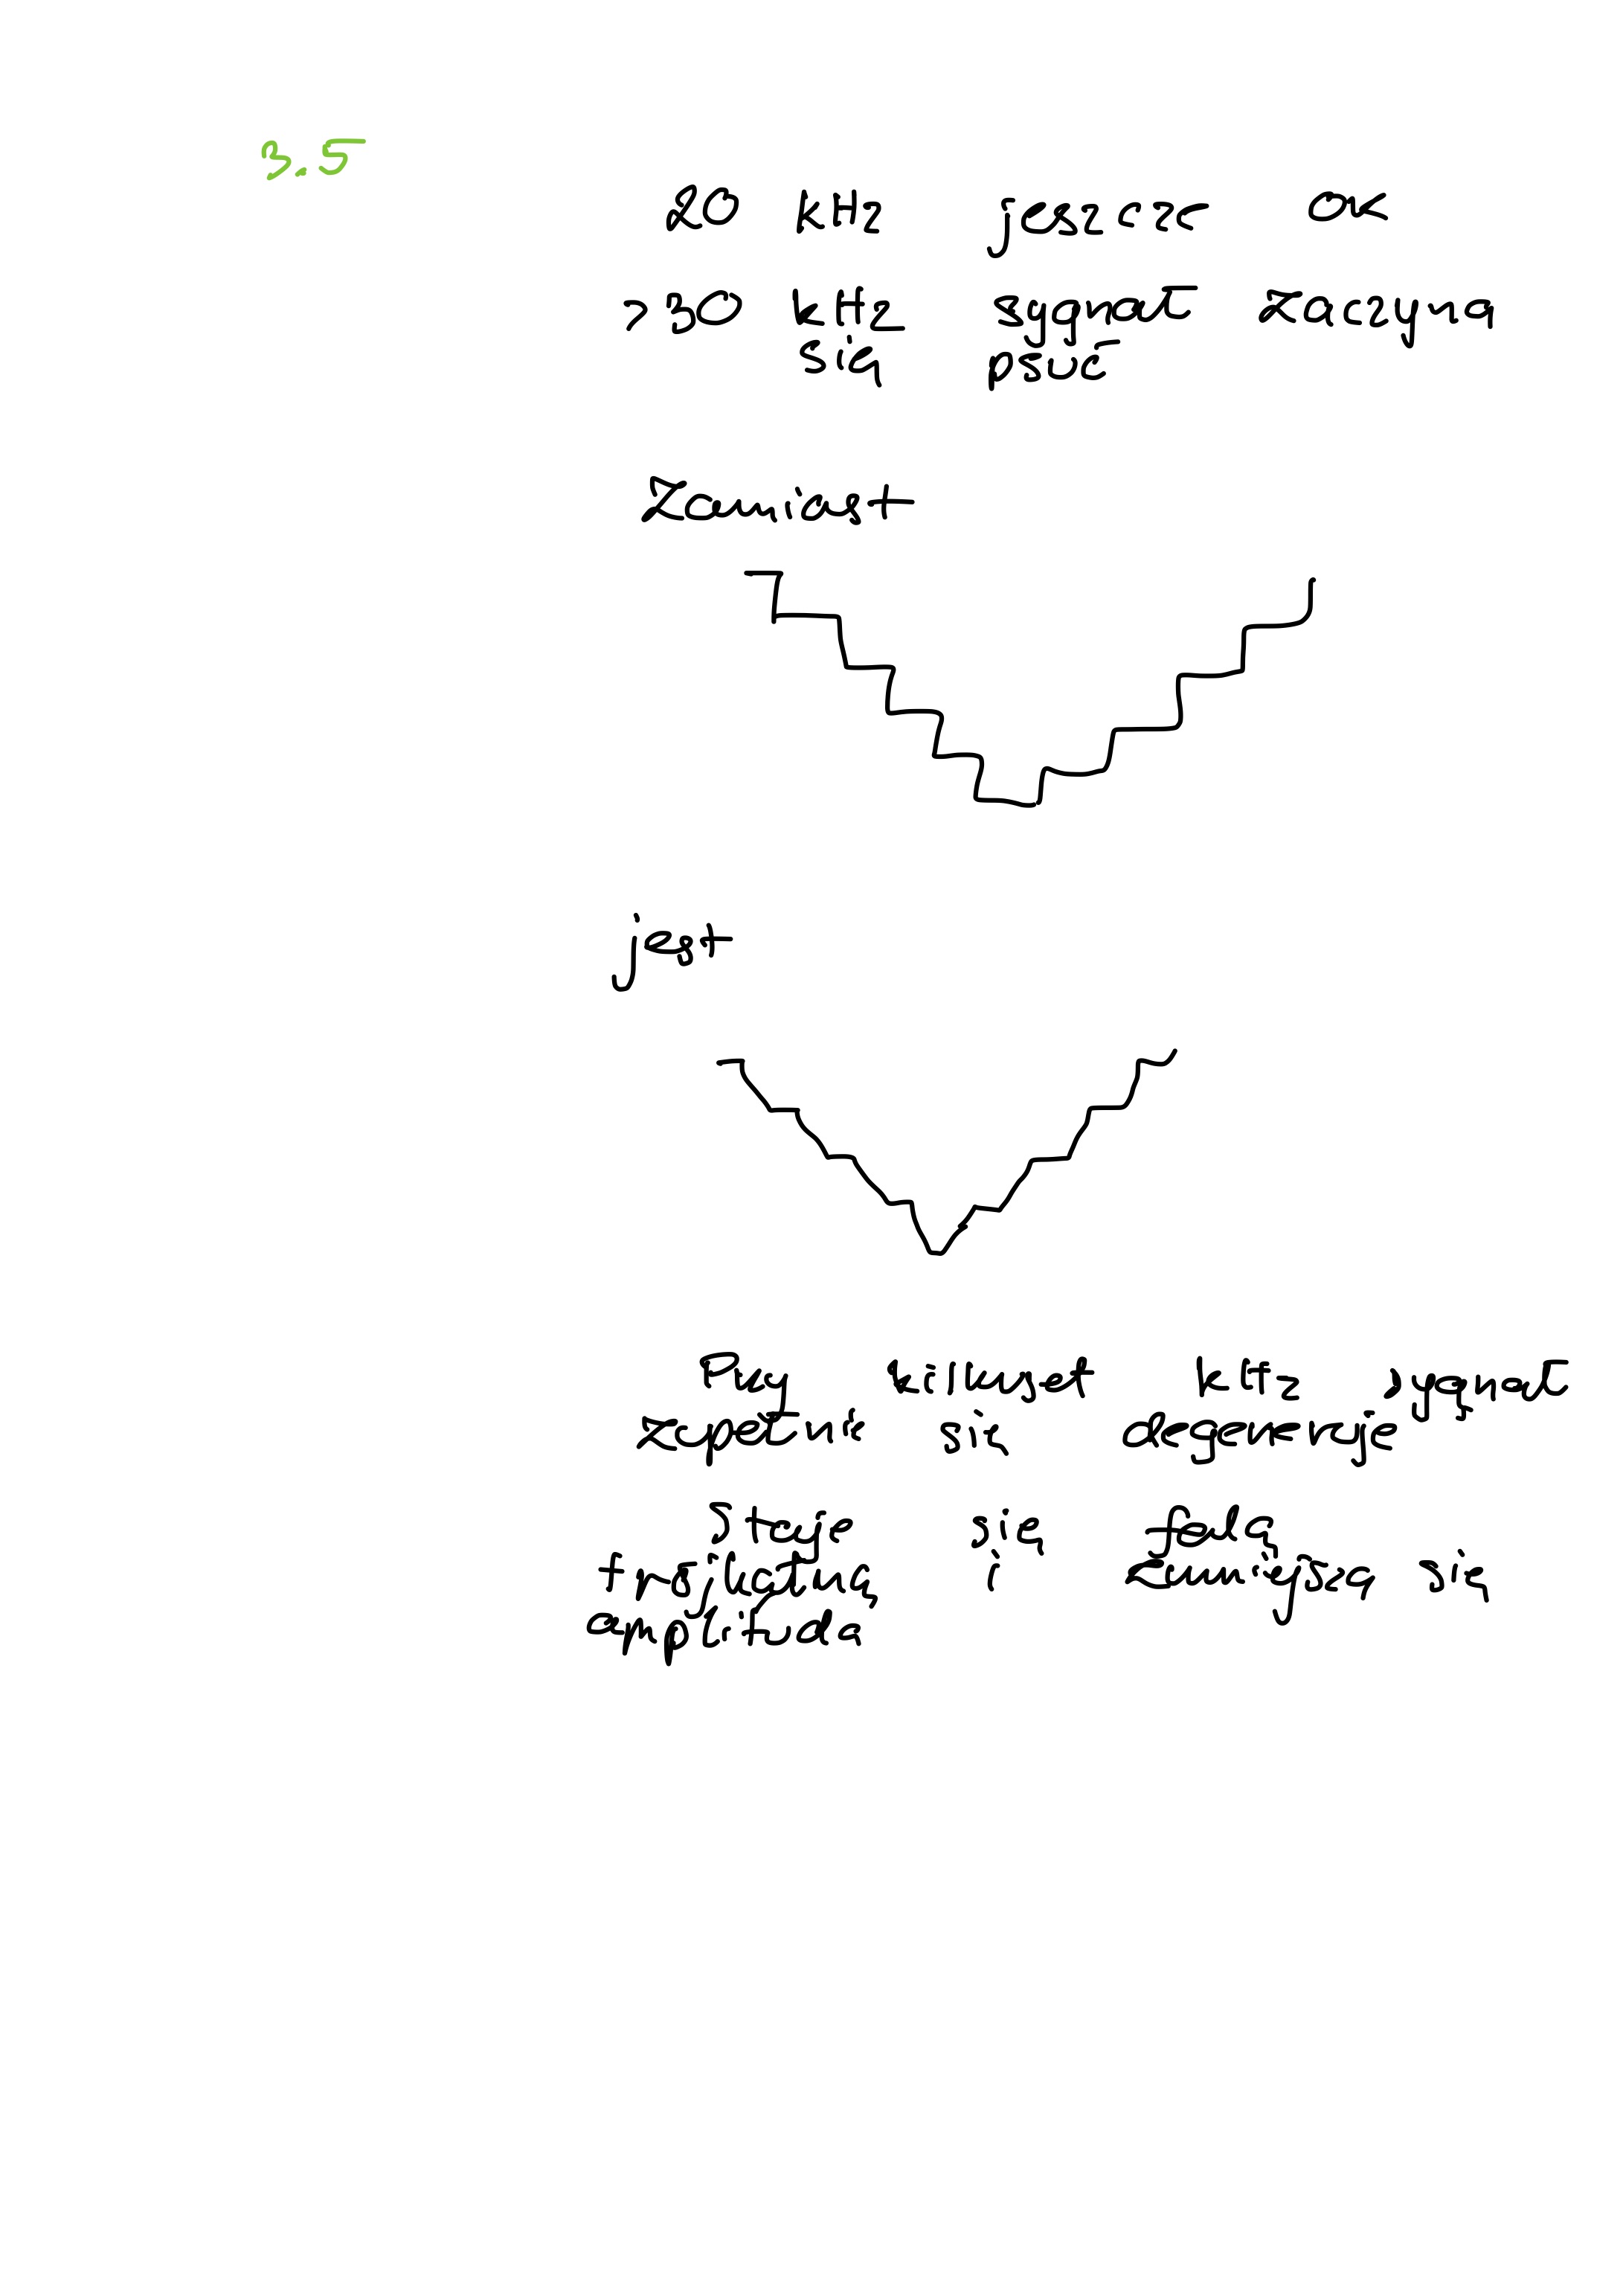 3.5
20 kHz jeszcze ok
>30 kHz sygnał zaczyna
się psuć
Zamiast
jest
Przy kilkuset kHz sygnał
zupełnie się degeneruje
Staje się falą
trójkątną i zmniejsza się
amplituda